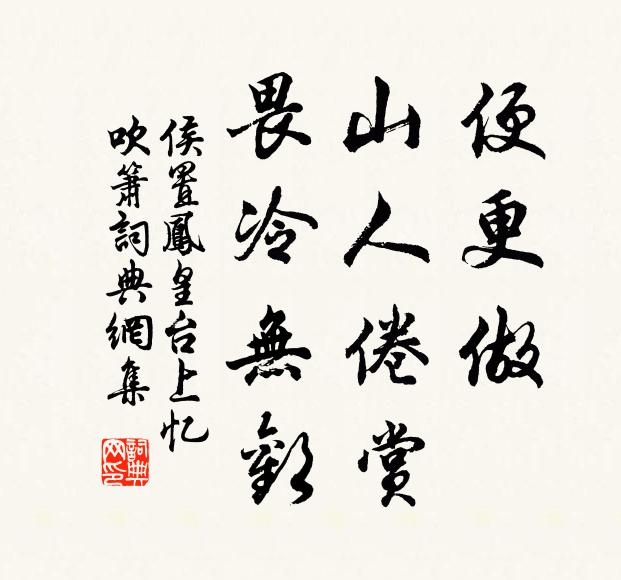 便更做
山人倦赏
畏冷無歡
侯置鳳皇台上忆
吹簫詞典網集
詞典
网印